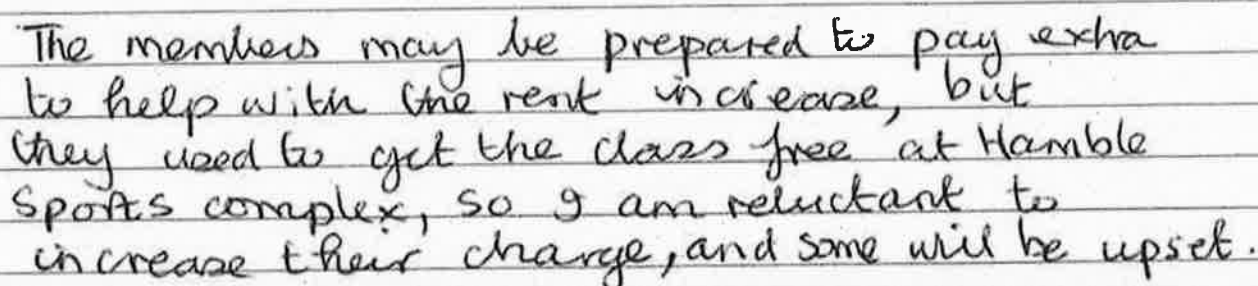 The members may be prepared to pay extra
to help with the rent increase, but
they used to get the class free at Hamble
Sports complex, so I am reluctant to
increase their charge, and some will be upset.